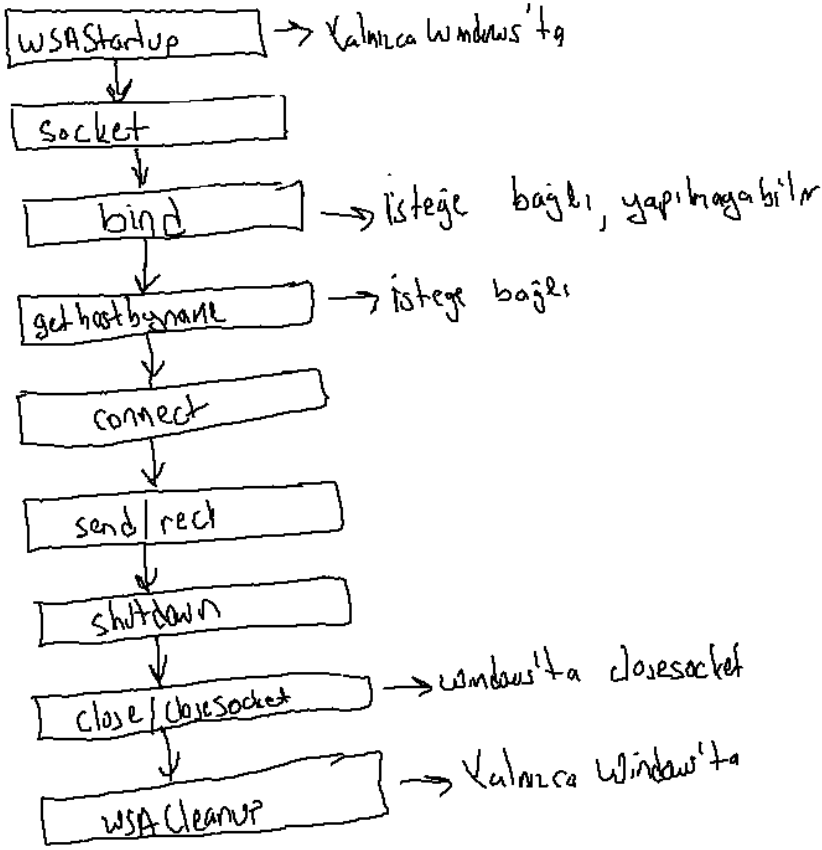 WSAStartup → Yalnızca Windows'ta
socket
bind → isteğe bağlı, yapılmayabilir
gethostbyname → isteğe bağlı
connect
send/recv
shutdown
close/closesocket → Windows'ta closesocket
WSACleanup → Yalnızca Windows'ta